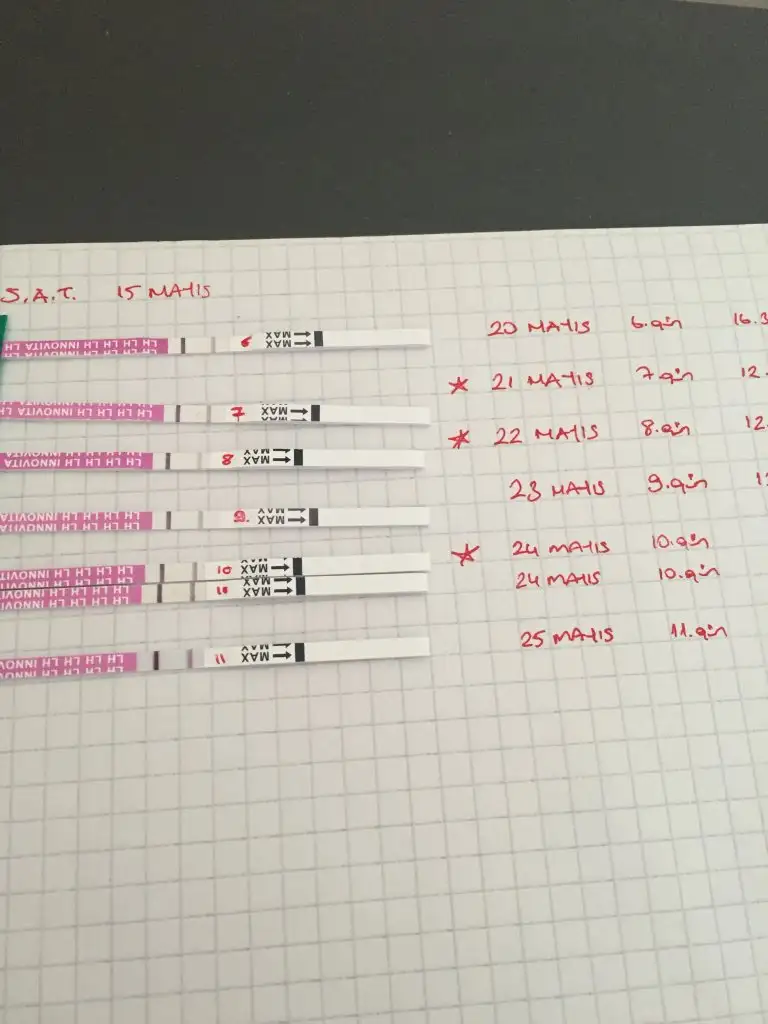 S.A.T. 15 MAYIS
20 MAYIS 6.gün 16.3
LH LH LH LH INNOVITA LH
6 MAX
MAX
★ 21 MAYIS 7.gün 12.
LH LH LH LH INNOVITA LH
7 MAX
★ 22 MAYIS 8.gün 12.
LH LH LH LH INNOVITA
8 MAX
23 MAYIS 9.gün
LH LH LH LH INNOVITA
9. MAX
★ 24 MAYIS 10.gün
LH LH LH LH INNOVITA
10 MAX
24 MAYIS 10.gün
LH LH LH LH INNOVITA
10 MAX
25 MAYIS 11.gün
LH LH LH LH INNOV
11 MAX